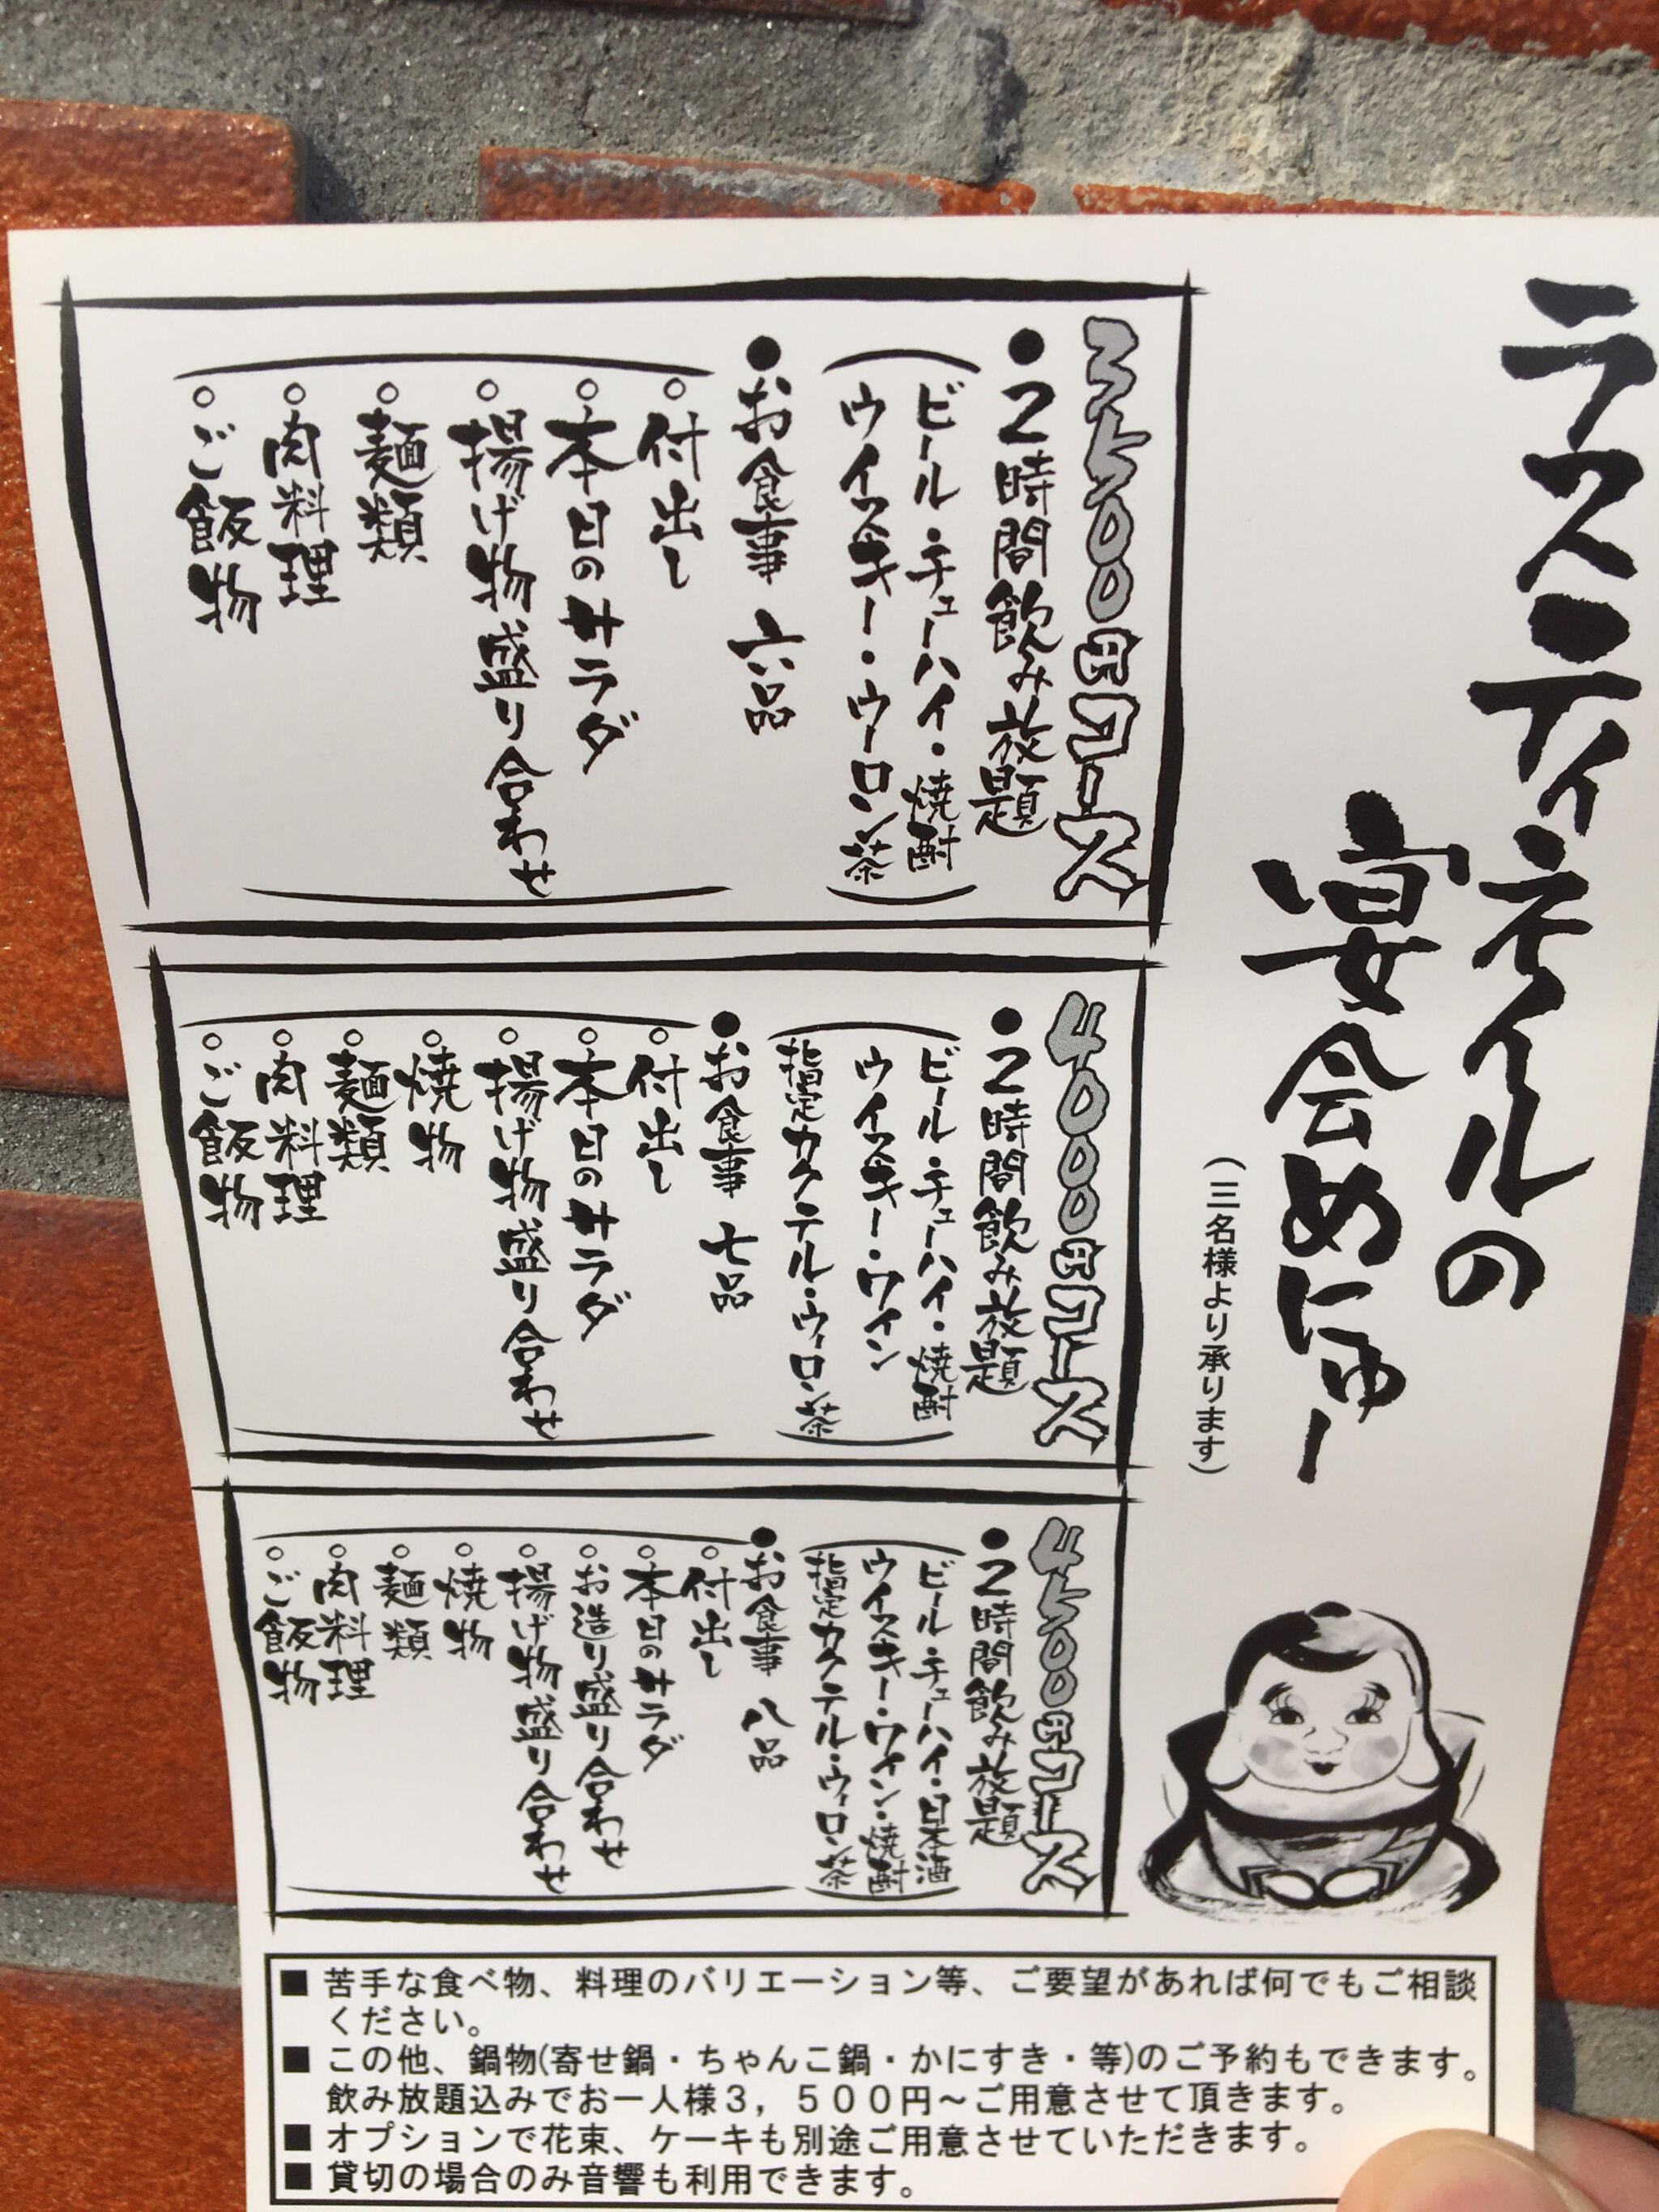 ラスティネイルの
宴会めにゅー
(三名様より承ります)
3500円コース
●2時間飲み放題
(ビール・チューハイ・焼酎
ウイスキー・ウーロン茶)
●お食事 六品
○付出し
○本日のサラダ
○揚げ物盛り合わせ
○麺類
○肉料理
○ご飯物
4000円コース
●2時間飲み放題
(ビール・チューハイ・焼酎
ウイスキー・ワイン
指定カクテル・ウィロン茶)
●お食事 七品
○付出し
○本日のサラダ
○揚げ物盛り合わせ
○焼物
○麺類
○肉料理
○ご飯物
4500円コース
●2時間飲み放題
(ビール・チューハイ・日本酒
ウイスキー・ワイン・焼酎
指定カクテル・ウィロン茶)
●お食事 八品
○付出し
○本日のサラダ
○お造り盛り合わせ
○揚げ物盛り合わせ
○焼物
○麺類
○肉料理
○ご飯物
■ 苦手な食べ物、料理のバリエーション等、ご要望があれば何でもご相談
ください。
■ この他、鍋物(寄せ鍋・ちゃんこ鍋・かにすき・等)のご予約もできます。
飲み放題込みでお一人様3,500円～ご用意させて頂きます。
■ オプションで花束、ケーキも別途ご用意させていただきます。
■ 貸切の場合のみ音響も利用できます。